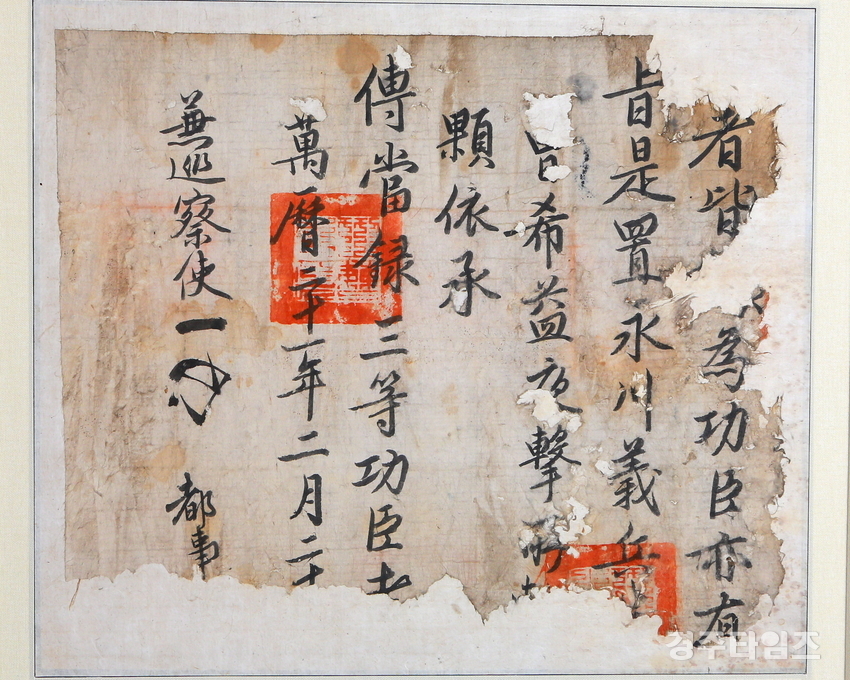 者皆 為功臣亦有
旨是置永川義兵
曺希益夜擊所
顆依承
傳當錄三等功臣者
萬曆二十一年二月二十
兼巡察使 都事
경주타임즈